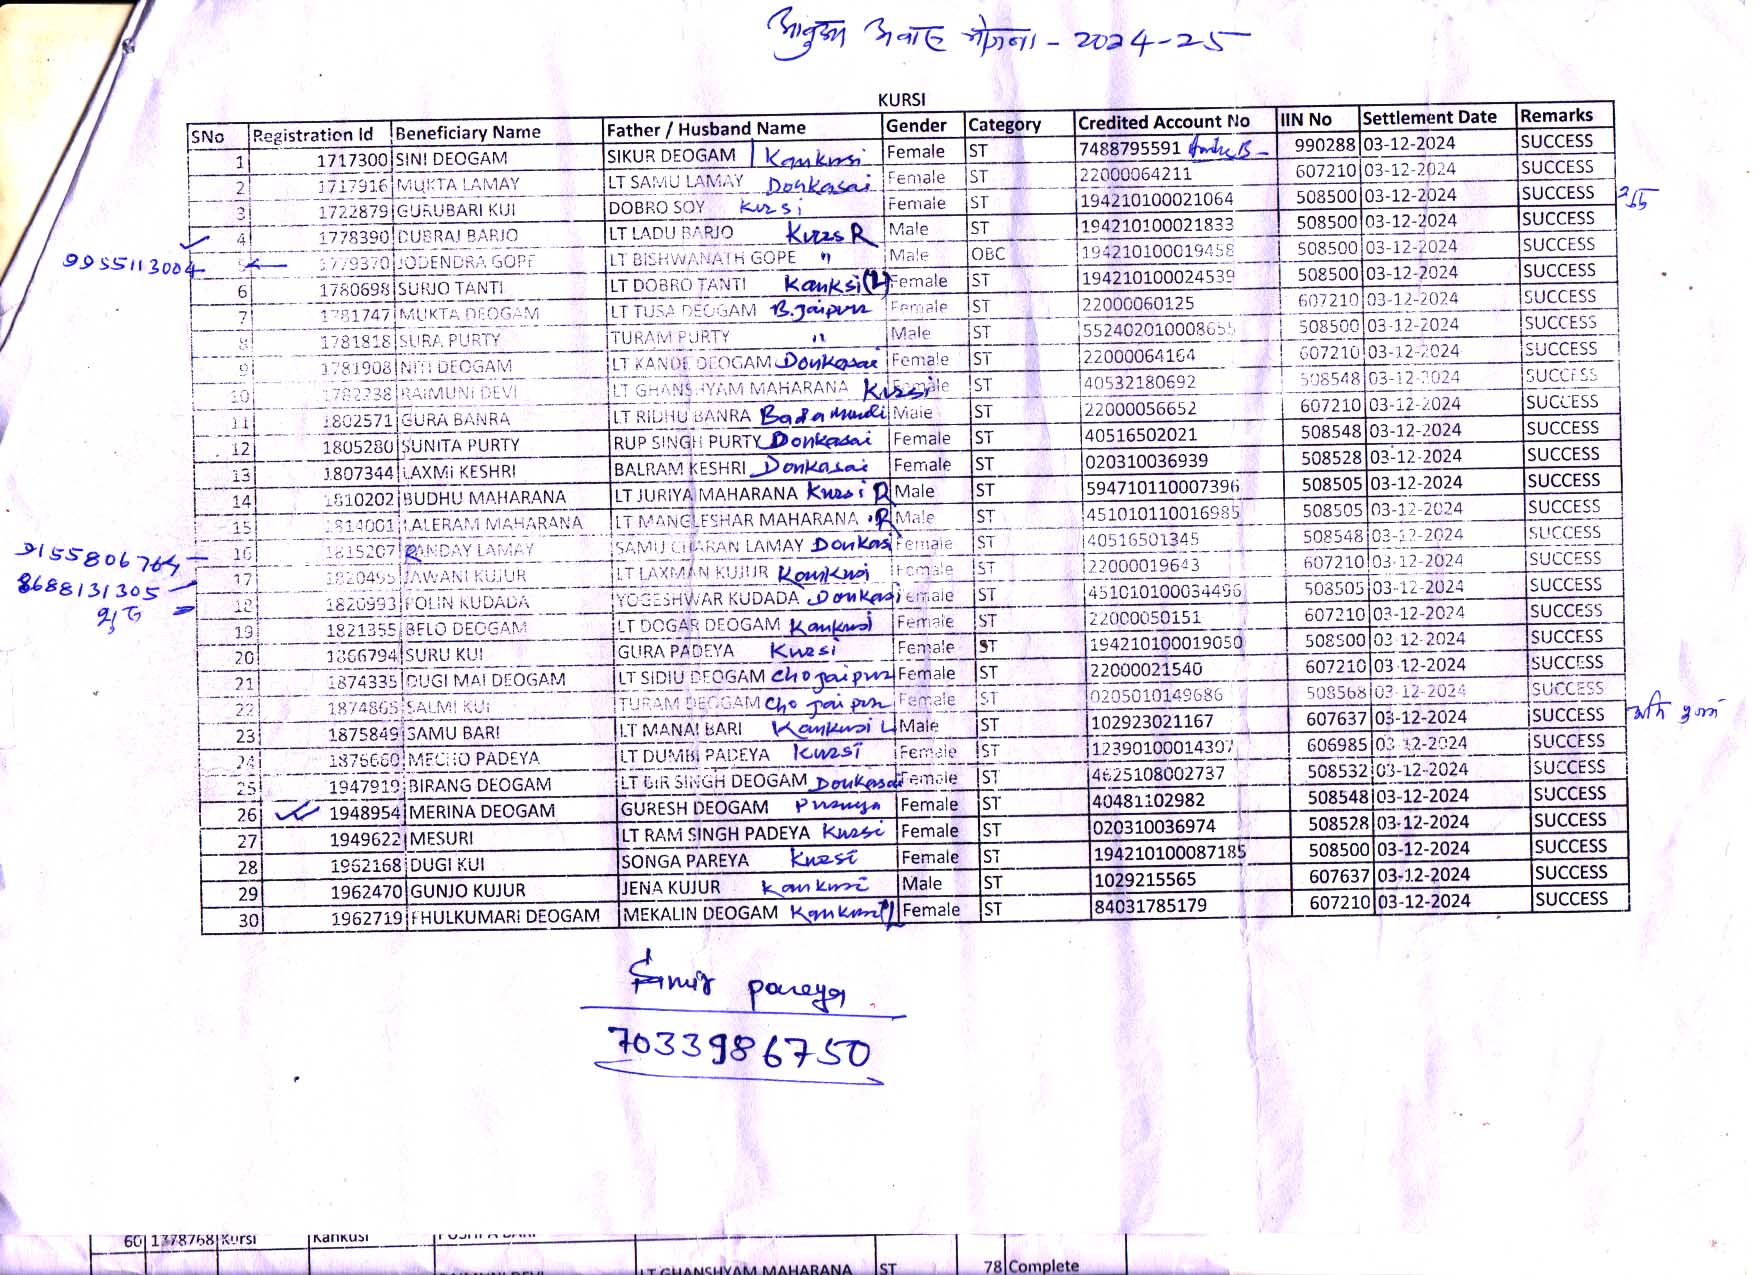 2024-25
KURSI
SNo Registration Id Beneficiary Name Father / Husband Name Gender Category Credited Account No IIN No Settlement Date Remarks
1 1717300 SINI DEOGAM SIKUR DEOGAM Kankusi Female ST 7488795591 990288 03-12-2024 SUCCESS
2 1717916 MUKTA LAMAY LT SAMU LAMAY Donkasai Female ST 22000064211 607210 03-12-2024 SUCCESS
3 1722879 GURUBARI KUI DOBRO SOY Kursi Female ST 194210100021064 508500 03-12-2024 SUCCESS
4 1778390 DUBRAJ BARJO LT LADU BARJO Kursi R Male ST 194210100021833 508500 03-12-2024 SUCCESS
9955113004 5 1779370 JODENDRA GOPE LT BISHWANATH GOPE " Male OBC 194210100019458 508500 03-12-2024 SUCCESS
6 1780698 SURJO TANTI LT DOBRO TANTI Kanksi (L) Female ST 194210100024539 508500 03-12-2024 SUCCESS
7 1781747 MUKTA DEOGAM LT TUSA DEOGAM B.Jaipur Female ST 22000060125 607210 03-12-2024 SUCCESS
8 1781818 SURA PURTY TURAM PURTY " Male ST 552402010008655 508500 03-12-2024 SUCCESS
9 1781908 NITI DEOGAM LT KANDE DEOGAM Donkasai Female ST 22000064164 607210 03-12-2024 SUCCESS
10 1782238 RAIMUNI DEVI LT GHANSHYAM MAHARANA Kursi Female ST 40532180692 508548 03-12-2024 SUCCESS
11 1802571 GURA BANRA LT RIDHU BANRA Badamundi Male ST 22000056652 607210 03-12-2024 SUCCESS
12 1805280 SUNITA PURTY RUP SINGH PURTY Donkasai Female ST 40516502021 508548 03-12-2024 SUCCESS
13 1807344 LAXMI KESHRI BALRAM KESHRI Donkasai Female ST 020310036939 508528 03-12-2024 SUCCESS
14 1810202 BUDHU MAHARANA LT JURIYA MAHARANA Kursi R Male ST 594710110007396 508505 03-12-2024 SUCCESS
15 1814001 LALERAM MAHARANA LT MANGLESHAR MAHARANA R Male ST 451010110016985 508505 03-12-2024 SUCCESS
9155806764 16 1815207 RANDAY LAMAY SAMU CHARAN LAMAY Donkasi Female ST 40516501345 508548 03-12-2024 SUCCESS
8688131305 17 1820495 JAWANI KUJUR LT LAXMAN KUJUR Kankusi Female ST 22000019643 607210 03-12-2024 SUCCESS
18 1820993 POLIN KUDADA YOGESHWAR KUDADA Donkasi Female ST 451010100034496 508505 03-12-2024 SUCCESS
19 1821355 BELO DEOGAM LT DOGAR DEOGAM Kankusi Female ST 22000050151 607210 03-12-2024 SUCCESS
20 1866794 SURU KUI GURA PADEYA Kursi Female ST 194210100019050 508500 03-12-2024 SUCCESS
21 1874335 DUGI MAI DEOGAM LT SIDIU DEOGAM Cho Jaipur Female ST 22000021540 607210 03-12-2024 SUCCESS
22 1874865 SALMI KUI TURAM DEOGAM Cho Jaipur Female ST 0205010149686 508568 03-12-2024 SUCCESS
23 1875849 SAMU BARI LT MANAI BARI Kankusi L Male ST 102923021167 607637 03-12-2024 SUCCESS
24 1876660 MECHO PADEYA LT DUMBI PADEYA Kursi Female ST 12390100014307 606985 03-12-2024 SUCCESS
25 1947919 BIRANG DEOGAM LT GIR SINGH DEOGAM Donkasai Female ST 4625108002737 508532 03-12-2024 SUCCESS
26 1948954 MERINA DEOGAM GURESH DEOGAM Female ST 40481102982 508548 03-12-2024 SUCCESS
27 1949622 MESURI LT RAM SINGH PADEYA Kursi Female ST 020310036974 508528 03-12-2024 SUCCESS
28 1962168 DUGI KUI SONGA PAREYA Kursi Female ST 194210100087185 508500 03-12-2024 SUCCESS
29 1962470 GUNJO KUJUR JENA KUJUR Kankusi Male ST 1029215565 607637 03-12-2024 SUCCESS
30 1962719 FHULKUMARI DEOGAM MEKALIN DEOGAM Kankusi Female ST 84031785179 607210 03-12-2024 SUCCESS
pareya
7033986750
60 1378768 Kursi Kankusi
LT GHANSHYAM MAHARANA ST 78 Complete